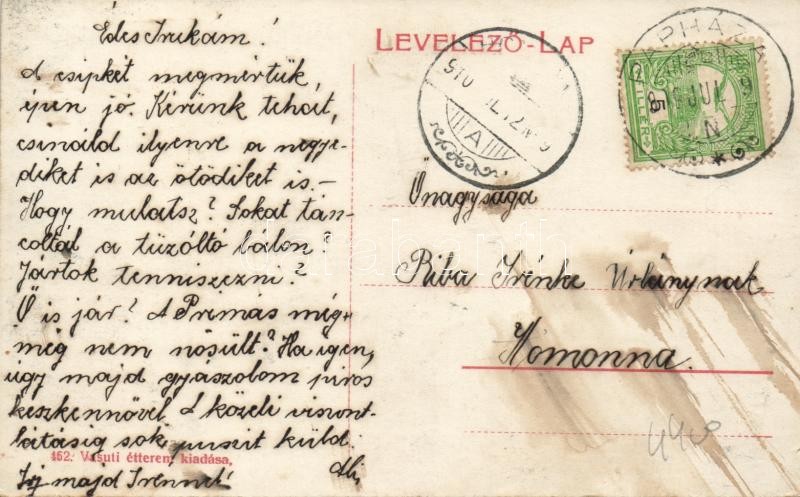 Édes Irikám!
A csipkét megmértük,
épen jó. Kérünk tehát,
csináld ilyenre a negye-
diket is az ötödiket is.-
Hogy mulatsz? Sokat tán-
coltál a tűzóltó bálon?
Jártok tenniszezni?
Ő is jár? A Prímás még-
még nem nősült? Ha igen,
úgy majd gyászolom piros
keszkennővel. A közeli viszont-
látásig sok puszit küld.
Írj majd Irénnek!
152. Vasuti étterem kiadása.
LEVELEZŐ-LAP
Őnagysága
Riba Irénke Úrlánynak
Homonna.
FILLÉR
5
910
A
JUL
440